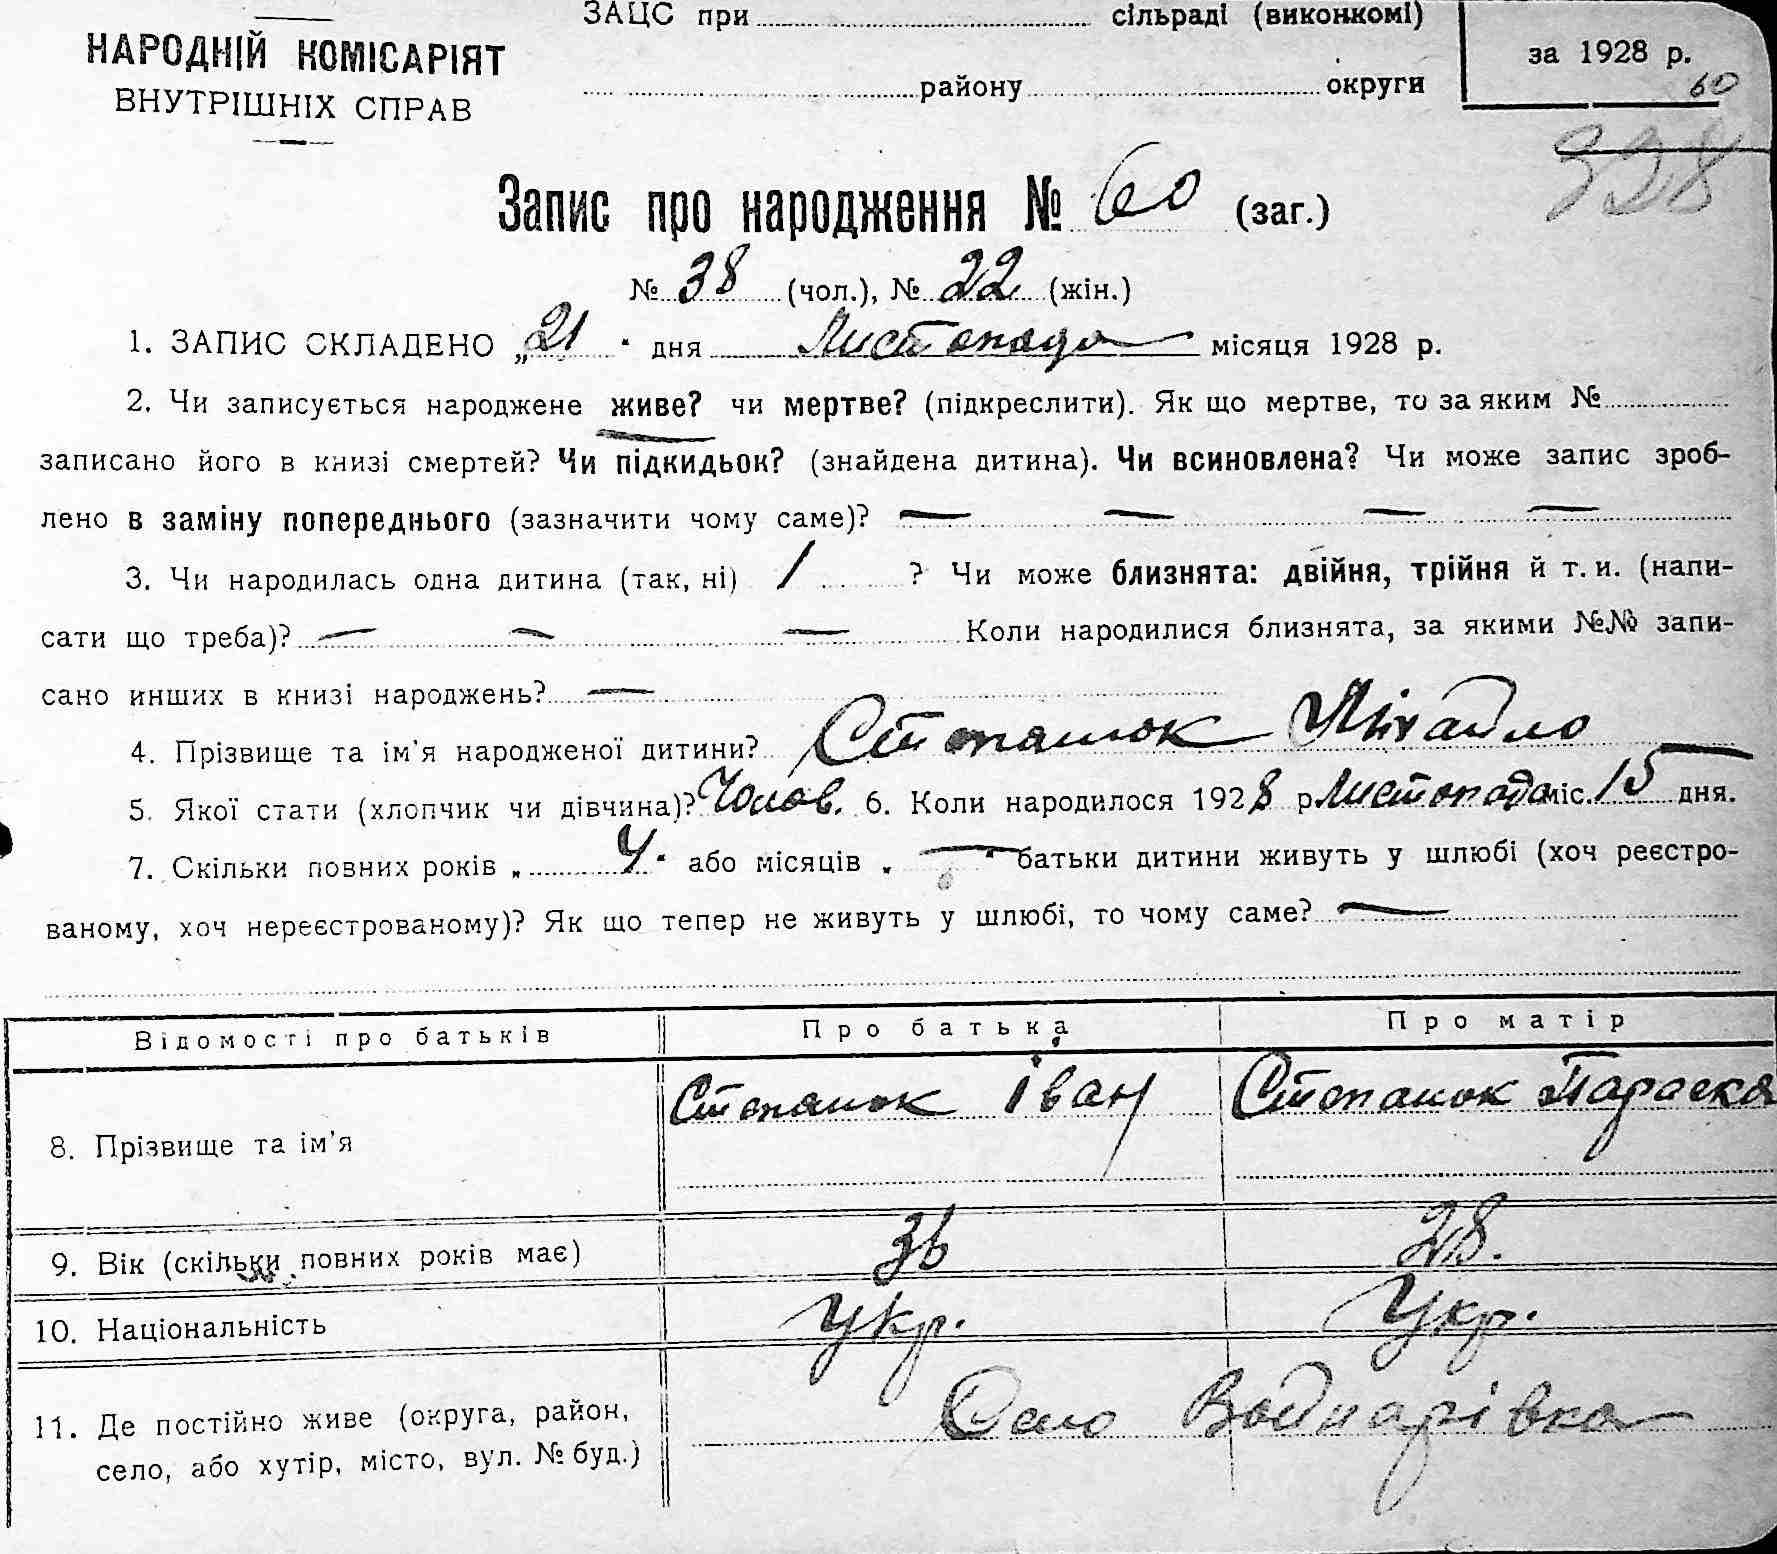 ЗАЦС при сільраді (виконкомі)
НАРОДНІЙ КОМІСАРІЯТ
ВНУТРІШНІХ СПРАВ
району округи
за 1928 р.
60
328
Запис про народження № 60 (заг.)
№ 38 (чол.), № 22 (жін.)
1. ЗАПИС СКЛАДЕНО „21" дня Листопада місяця 1928 р.
2. Чи записується народжене живе? чи мертве? (підкреслити). Як що мертве, то за яким №
записано його в книзі смертей? Чи підкидьок? (знайдена дитина). Чи всиновлена? Чи може запис зроб-
лено в заміну попереднього (зазначити чому саме)? — — — —
3. Чи народилась одна дитина (так, ні) 1 ? Чи може близнята: двійня, трійня й т. и. (напи-
сати що треба)? — — — Коли народилися близнята, за якими №№ запи-
сано инших в книзі народжень? —
4. Прізвище та ім'я народженої дитини? Степанюк Міхайло
5. Якої стати (хлопчик чи дівчина)? Чолов. 6. Коли народилося 1928 р. Листопада міс. 15 дня.
7. Скільки повних років „ 4 " або місяців „ — " батьки дитини живуть у шлюбі (хоч реєстро-
ваному, хоч нереєстрованому)? Як що тепер не живуть у шлюбі, то чому саме? —
Відомості про батьків Про батька Про матір
8. Прізвище та ім'я Степанюк Іван Степанюк Параска
9. Вік (скільки повних років має) 36 28.
10. Національність Укр. Укр.
11. Де постійно живе (округа, район,
село, або хутір, місто, вул. № буд.) Село Боднарівка